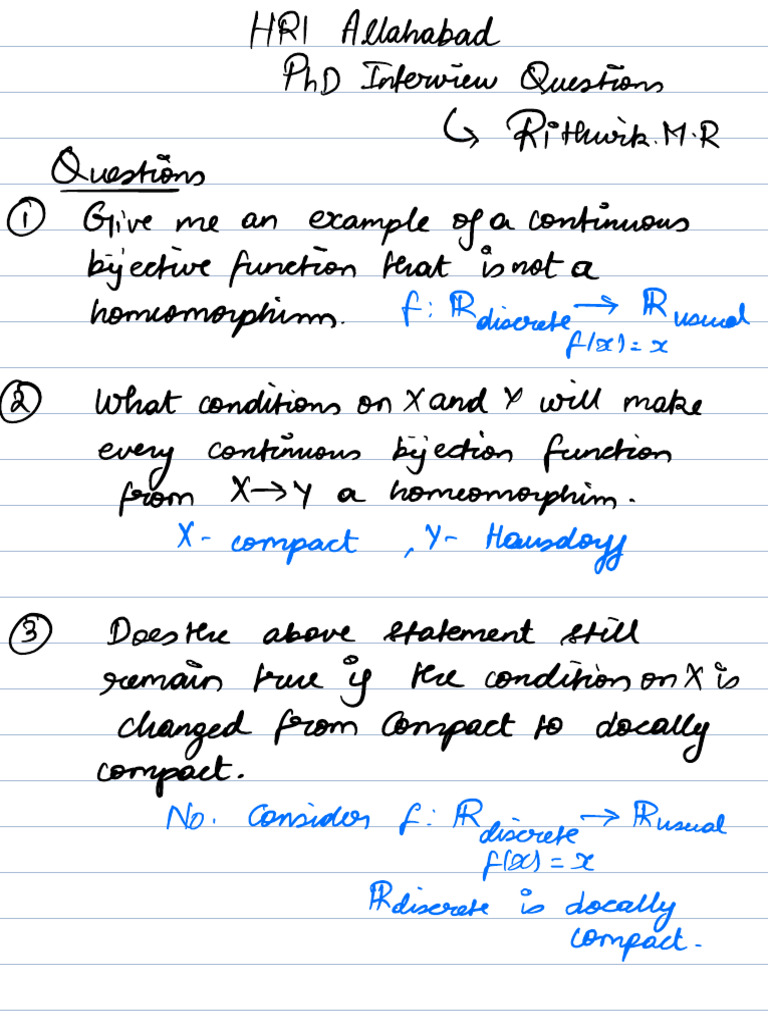 HRI Allahabad
PhD Interview Questions
↳ Rithwik.M.R
Questions
① Give me an example of a continuous
bijective function that is not a
homeomorphism. f: ℝ discrete → ℝ usual
f(x) = x
② What conditions on X and Y will make
every continuous bijection function
from X→Y a homeomorphim.
X - compact , Y - Hausdorff
③ Does the above statement still
remain true if the condition on X is
changed from Compact to locally
compact.
No. Consider f: ℝ discrete → ℝ usual
f(x) = x
ℝ discrete is locally
compact.